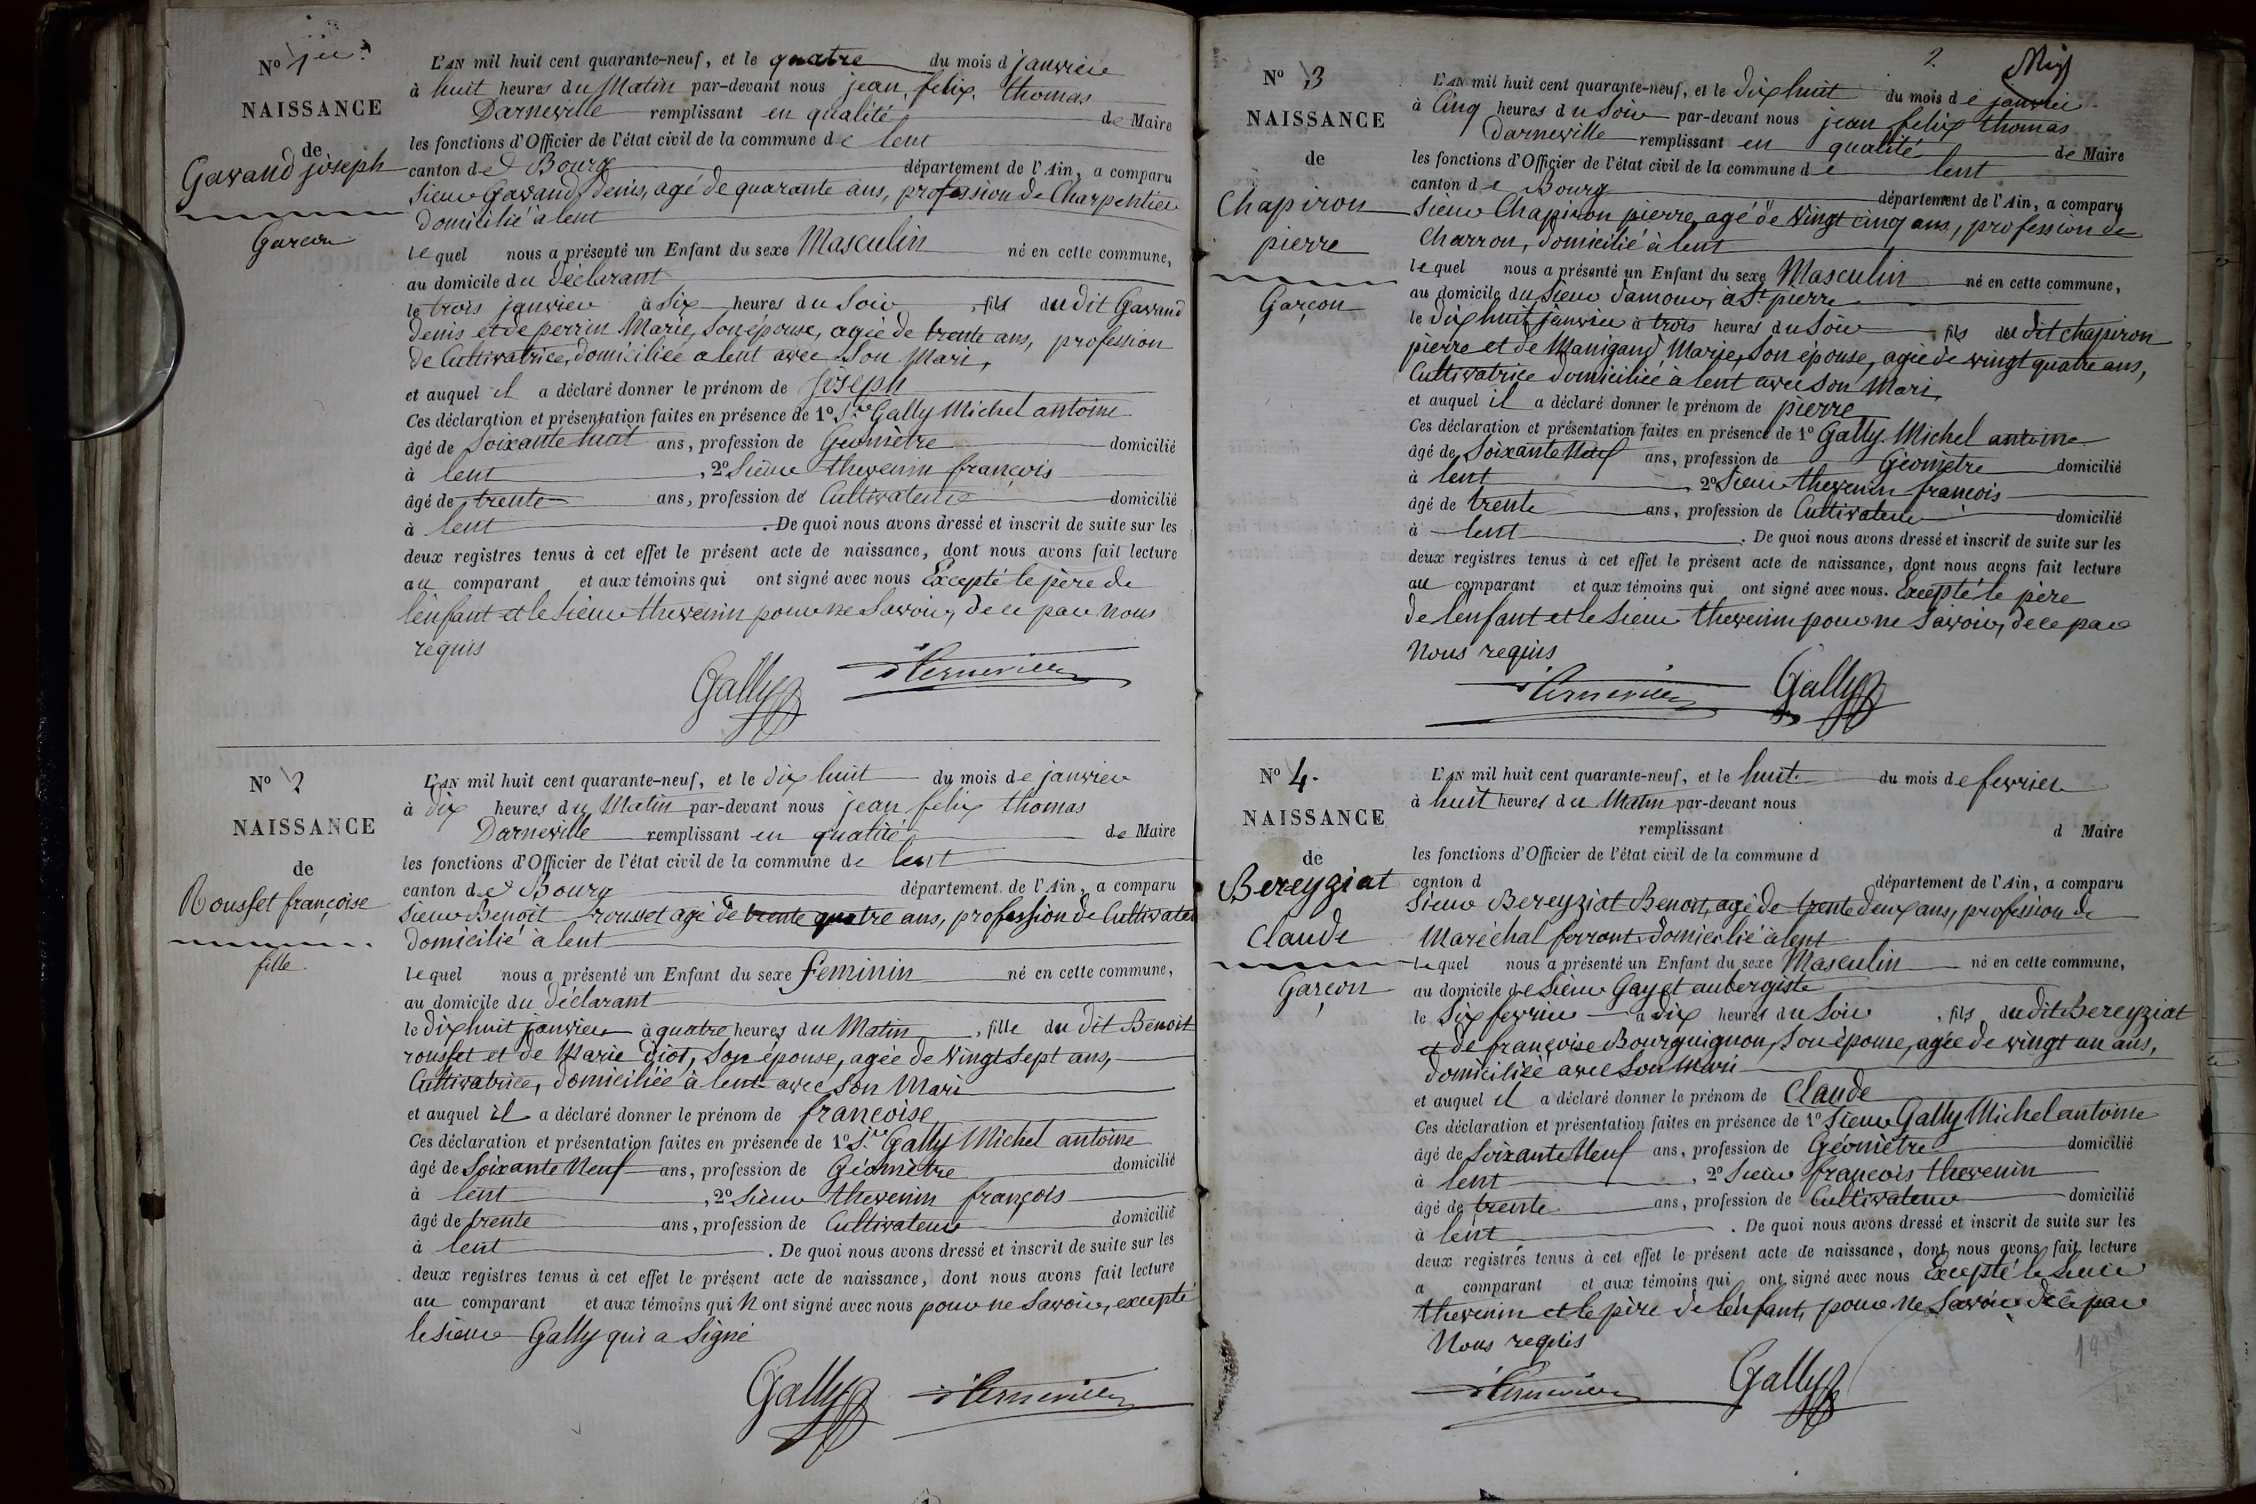 N° 1er
NAISSANCE
de
Gavand joseph
Garcon
L'AN mil huit cent quarante-neuf, et le quatre du mois d janvier
à huit heures du Matin par-devant nous jean, felix, thomas
Darneville remplissant en qualité de Maire
les fonctions d'Officier de l'état civil de la commune de lent
canton de Bourg département de l'Ain, a comparu
Sieur Gavand, denis, agé de quarante ans, profession de Charpentier
domicilié à lent
lequel nous a présenté un Enfant du sexe Masculin né en cette commune,
au domicile du déclarant
le trois janvier à six heures du Soir, fils du dit Gavand
denis et de perrin Marie, son épouse, agée de trente ans, profession
de Cultivatrice, domiciliée a lent avec Son Mari,
et auquel il a déclaré donner le prénom de Joseph
Ces déclaration et présentation faites en présence de 1° Sr Gally Michel antoine
âgé de Soixante huit ans, profession de Géomètre domicilié
à lent, 2° Sieur thevenin françois
âgé de trente ans, profession de Cultivateur domicilié
à lent. De quoi nous avons dressé et inscrit de suite sur les
deux registres tenus à cet effet le présent acte de naissance, dont nous avons fait lecture
au comparant et aux témoins qui ont signé avec nous Excepté le père de
l'enfant et le sieur thevenin pour ne Savoir, de ce par nous
requis
Gally
N° 2
NAISSANCE
de
Rousset françoise
fille.
L'AN mil huit cent quarante-neuf, et le dix huit du mois de janvier
à dix heures du Matin par-devant nous jean, felix thomas
Darneville remplissant en qualité de Maire
les fonctions d'Officier de l'état civil de la commune de lent
canton de Bourg département de l'Ain, a comparu
Sieur Benoit rousset agé de trente quatre ans, profession de Cultivateur
domicilié à lent
lequel nous a présenté un Enfant du sexe feminin né en cette commune,
au domicile du déclarant
le dix huit janvier à quatre heures du Matin, fille du dit Benoit
rousset et de Marie diot, Son épouse, agée de Vingt Sept ans,
Cultivatrice, domiciliée à lent avec Son Mari
et auquel il a déclaré donner le prénom de françoise
Ces déclaration et présentation faites en présence de 1° Sr Gally Michel antoine
âgé de Soixante Neuf ans, profession de Géomètre domicilié
à lent, 2° Sieur thevenin françois
âgé de trente ans, profession de Cultivateur domicilié
à lent. De quoi nous avons dressé et inscrit de suite sur les
deux registres tenus à cet effet le présent acte de naissance, dont nous avons fait lecture
au comparant et aux témoins qui N ont signé avec nous pour ne Savoir, excepté
le sieur Gally qui a Signé
Gally
2.
N° 3
NAISSANCE
de
Chapiron
pierre
Garçon
L'AN mil huit cent quarante-neuf, et le dix huit du mois de janvier
à Cinq heures du Soir par-devant nous jean felix thomas
darneville remplissant en qualité de Maire
les fonctions d'Officier de l'état civil de la commune de lent
canton de Bourg département de l'Ain, a comparu
Sieur Chapiron pierre, agé de Vingt cinq ans, profession de
Charron, domicilié à lent
lequel nous a présenté un Enfant du sexe Masculin né en cette commune,
au domicile du Sieur damour, à St pierre
le dix huit janvier à trois heures du Soir fils du dit Chapiron
pierre et de Manigand, Marie, Son épouse, agée de vingt quatre ans,
Cultivatrice domiciliée à lent avec Son Mari,
et auquel il a déclaré donner le prénom de pierre
Ces déclaration et présentation faites en présence de 1° Gally. Michel antoine
âgé de Soixante Neuf ans, profession de Géomètre domicilié
à lent 2° Sieur thevenin françois
âgé de trente ans, profession de Cultivateur domicilié
à lent. De quoi nous avons dressé et inscrit de suite sur les
deux registres tenus à cet effet le présent acte de naissance, dont nous avons fait lecture
au comparant et aux témoins qui ont signé avec nous. Excepté le père
de l'enfant et le Sieur thevenin pour ne Savoir, de ce par
Nous requis
Gally
N° 4.
NAISSANCE
de
Bereyziat
Claude
Garçon
L'AN mil huit cent quarante-neuf, et le huit du mois de fevrier
à huit heures du Matin par-devant nous
remplissant d Maire
les fonctions d'Officier de l'état civil de la commune d
canton d département de l'Ain, a comparu
Sieur Bereyziat Benoit, agé de trente deux ans, profession de
Maréchal ferrant domicilié à lent
lequel nous a présenté un Enfant du sexe Masculin né en cette commune,
au domicile de Sieur Gayet aubergiste
le Six fevrier à dix heures du Soir, fils du dit Bereyziat
et de françoise Bourguignon, Son épouse, agée de vingt un ans,
domiciliée avec Son Mari
et auquel il a déclaré donner le prénom de Claude
Ces déclaration et présentation faites en présence de 1° Sieur Gally Michel antoine
âgé de Soixante Neuf ans, profession de Géomètre domicilié
à lent, 2° Sieur françois thevenin
âgé de trente ans, profession de Cultivateur domicilié
à lent. De quoi nous avons dressé et inscrit de suite sur les
deux registres tenus à cet effet le présent acte de naissance, dont nous avons fait lecture
a comparant et aux témoins qui ont signé avec nous Excepté le Sieur
thevenin et le père de l'enfant, pour Ne Savoir de ce par
Nous requis
Gally